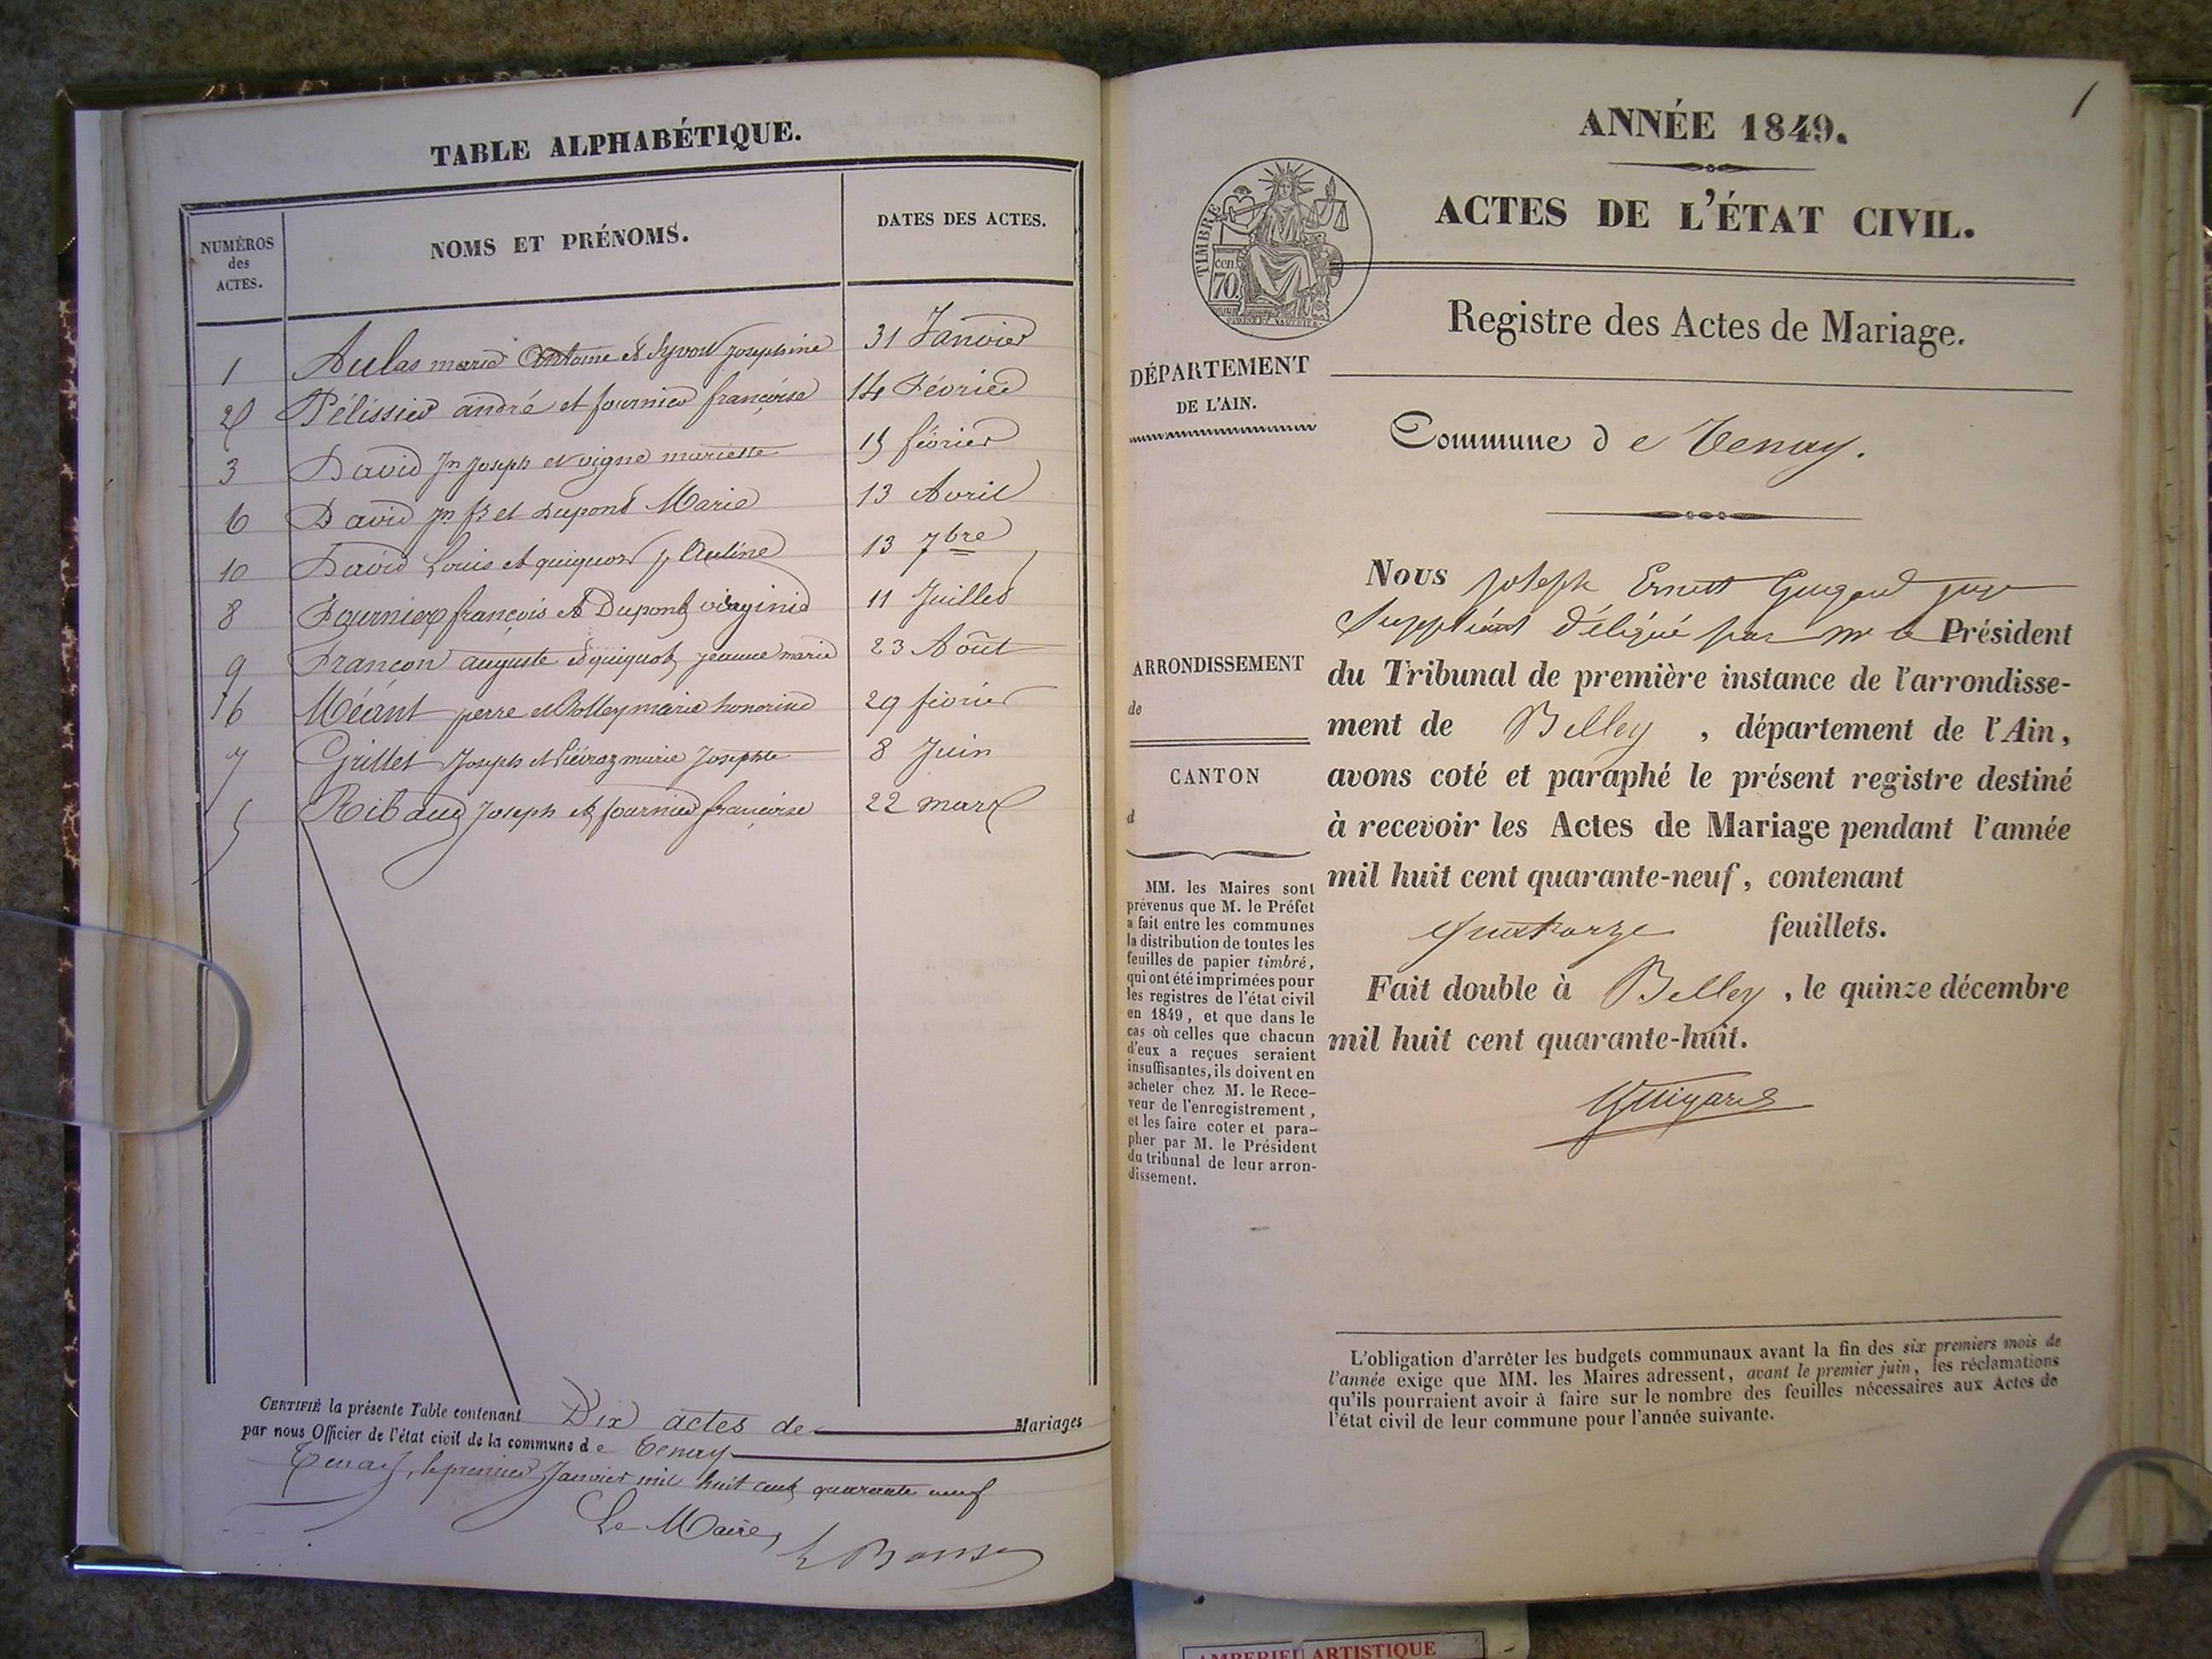 TABLE ALPHABÉTIQUE.
NUMÉROS
des
ACTES.
NOMS ET PRÉNOMS.
DATES DES ACTES.
1 Aulas marie Antoine et Syvou Josephine 31 Janvier
2 Pélissier andré et fournier françoise 14 Février
3 David Jn Joseph et vigne mariette 15 février
6 David Jn fs et Dupont Marie 13 Avril
10 David Louis et quiquoz pauline 13 7bre
8 Fournier françois et Dupont virginie 11 Juillet
9 Françon auguste et quiquot jeanne marie 23 Août
Méant pierre et Bolley marie honorine 29 février
7 Grillet Joseph et marie Josephte 8 Juin
5 Ribaud Joseph et fournier françoise 22 mars
CERTIFIÉ la présente Table contenant Dix actes de Mariages
par nous Officier de l'état civil de la commune de Tenay
Tenay, le premier Janvier mil huit cent quarante neuf
Le Maire,
1
ANNÉE 1849.
ACTES DE L'ÉTAT CIVIL.
TIMBRE
70 cen
Registre des Actes de Mariage.
DÉPARTEMENT
DE L'AIN.
Commune de Tenay.
ARRONDISSEMENT
de
CANTON
d
MM. les Maires sont
prévenus que M. le Préfet
a fait entre les communes
la distribution de toutes les
feuilles de papier timbré,
qui ont été imprimées pour
les registres de l'état civil
en 1849, et que dans le
cas où celles que chacun
d'eux a reçues seraient
insuffisantes, ils doivent en
acheter chez M. le Rece-
veur de l'enregistrement,
et les faire coter et para-
pher par M. le Président
du tribunal de leur arron-
dissement.
Nous Joseph Ernest Guigard juge
Suppléant Délégué par mr le Président
du Tribunal de première instance de l'arrondisse-
ment de Belley, département de l'Ain,
avons coté et paraphé le présent registre destiné
à recevoir les Actes de Mariage pendant l'année
mil huit cent quarante-neuf, contenant
quatorze feuillets.
Fait double à Belley, le quinze décembre
mil huit cent quarante-huit.
Guigard
L'obligation d'arrêter les budgets communaux avant la fin des six premiers mois de
l'année exige que MM. les Maires adressent, avant le premier juin, les réclamations
qu'ils pourraient avoir à faire sur le nombre des feuilles nécessaires aux Actes de
l'état civil de leur commune pour l'année suivante.
AMBERIEU ARTISTIQUE